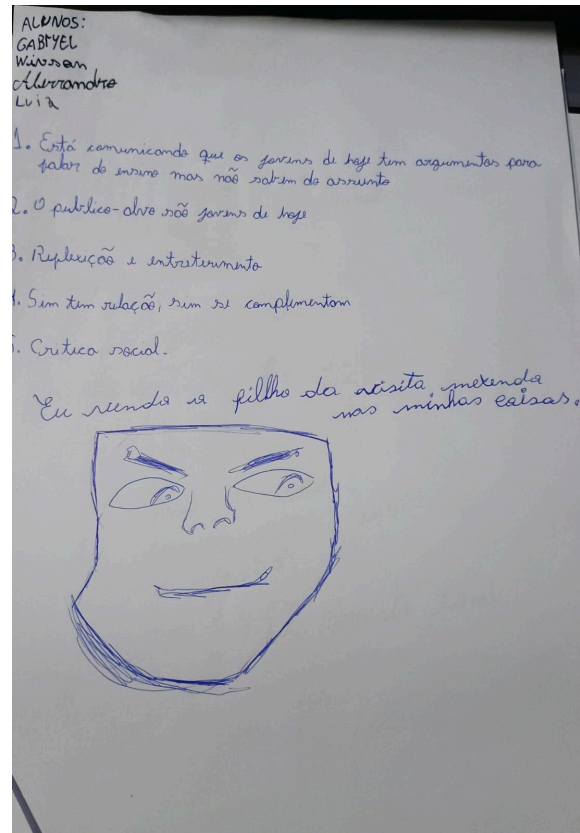 ALUNOS:
GABRYEL
Winssan
Alerrandro
Luiz
1. Está comunicando que os jovens de hoje tem argumentos para
falar do ensino mas naõ sabem do assunto
2. O publico-alvo saõ jovens de hoje
3. Reflexiçaõ e entreterimento
4. Sim tem relaçaõ, sim se complimentam
5. Critica social.
Eu vendo o filho da visita mexendo
nas minhas coisas.